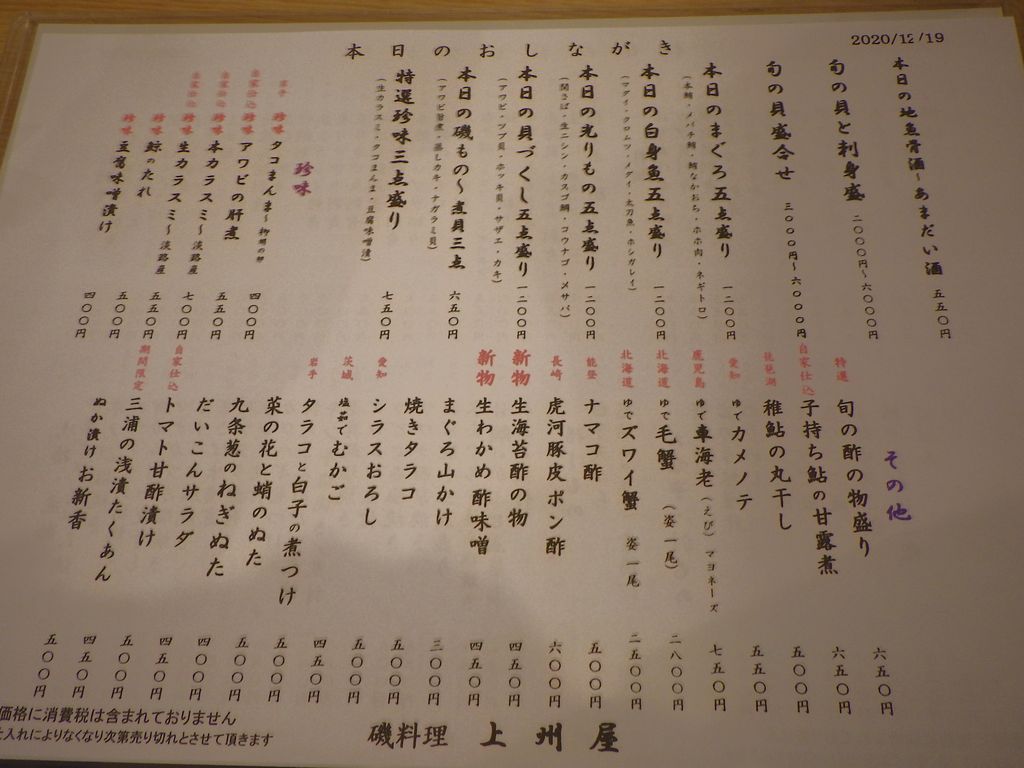 2020/12/19
本日のおしながき
本日の地魚骨酒~あまだい酒 五五〇円
旬の貝と刺身盛 二〇〇〇円~六〇〇〇円
旬の貝盛合せ 三〇〇〇円~六〇〇〇円
本日のまぐろ五点盛り 一二〇〇円
(本鮪・メバチ鮪・鮪なかおち・ホホ肉・ネギトロ)
本日の白身魚五点盛り 一二〇〇円
(マダイ・クロムツ・メダイ・太刀魚・ホシガレイ)
本日の光りもの五点盛り 一二〇〇円
(関さば・生ニシン・カスゴ鯛・コウナゴ・メサバ)
本日の貝づくし五点盛り 一二〇〇円
(アワビ・ツブ貝・ホッキ貝・サザエ・カキ)
本日の磯もの~煮貝三点 六五〇円
(アワビ旨煮・蒸しカキ・ナガラミ貝)
特選珍味三点盛り 七五〇円
(生カラスミ・タコまんま・豆腐味噌漬)
珍味
岩手 珍味 タコまんま~ 四〇〇円
自家仕込 珍味 アワビの肝煮 五五〇円
自家仕込 珍味 本カラスミ~淡路産 七〇〇円
自家仕込 珍味 生カラスミ~淡路産 五五〇円
珍味 鯨のたれ 五〇〇円
珍味 豆腐味噌漬け 四〇〇円
その他
特選 旬の酢の物盛り 六五〇円
自家仕込 子持ち鮎の甘露煮 六五〇円
琵琶湖 稚鮎の丸干し 五〇〇円
愛知 ゆでカメノテ 五五〇円
鹿児島 ゆで車海老(えび)マヨネーズ 七五〇円
北海道 ゆで毛蟹(姿一尾) 二八〇〇円
北海道 ゆでズワイ蟹 姿一尾 二五〇〇円
能登 ナマコ酢 五〇〇円
長崎 虎河豚皮ポン酢 六〇〇円
新物 生海苔酢の物 四五〇円
新物 生わかめ酢味噌 四五〇円
まぐろ山かけ 三〇〇円
焼きタラコ 五〇〇円
愛知 シラスおろし 五〇〇円
茨城 塩茹でむかご 四五〇円
岩手 タラコと白子の煮つけ 五〇〇円
菜の花と蛸のぬた 五〇〇円
九条葱のねぎぬた 四〇〇円
だいこんサラダ 四五〇円
自家仕込 トマト甘酢漬け 五〇〇円
期間限定 三浦の浅漬たくあん 四五〇円
ぬか漬けお新香 五〇〇円
価格に消費税は含まれておりません
入れによりなくなり次第売り切れとさせて頂きます
磯料理 上州屋